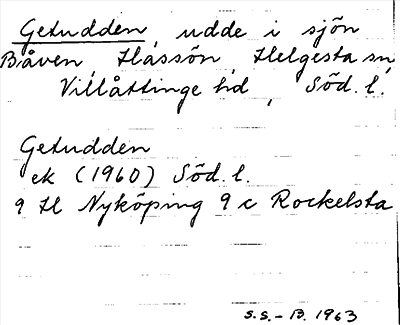 Getudden, udde i sjön
Båven, Hässön, Helgesta sn,
Villåttinge hd, Söd. l.
Getudden
ek (1960) Söd. l.
9 H Nyköping 9 c Rockelsta
S.S. - B. 1963